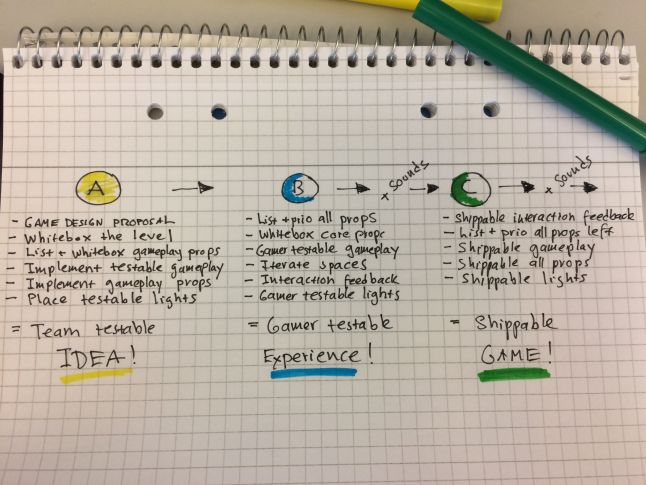 A → B → × sounds → C → × sounds →
- GAME DESIGN PROPOSAL
- Whitebox the level
- List + Whitebox gameplay props
- Implement testable gameplay
- Implement gameplay props
- Place testable lights
= Team testable
IDEA!
- List + prio all props
- Whitebox core props
- Gamer testable gameplay
- Iterate spaces
- Interaction feedback
- Gamer testable lights
= Gamer testable
Experience!
- Shippable interaction feedback
- List + prio all props left
- Shippable gameplay
- Shippable all props
- Shippable lights
= Shippable
GAME!